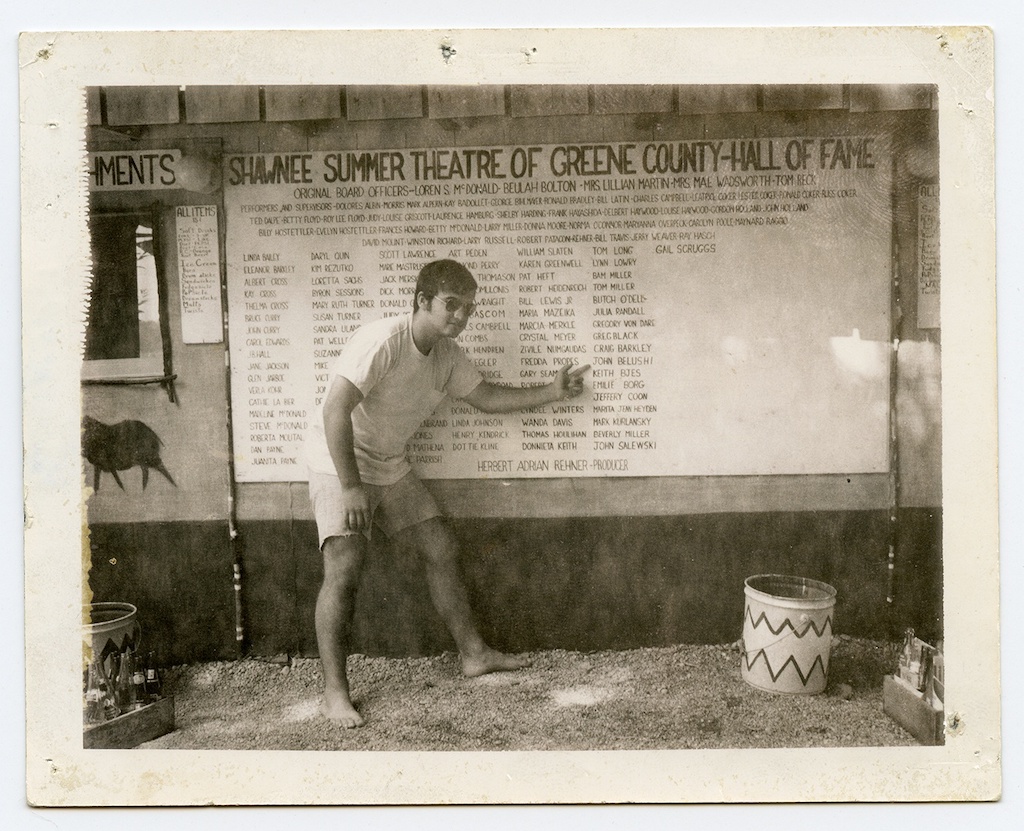 HMENTS
SHAWNEE SUMMER THEATRE OF GREENE COUNTY-HALL OF FAME
ORIGINAL BOARD OFFICERS-LOREN S. McDONALD-BEULAH BOLTON-MRS LILLIAN MARTIN-MRS MAE WADSWORTH-TOM BECK
PERFORMERS AND SUPERVISORS-DOLORES ALBIN-MORRIS MARK ALPERN-KAY BADOLLET-GEORGE BRADLEY-BILL LATIN-CHARLES CAMPBELL
TED DALPE-BETTY FLOYD-ROY LEE FLOYD-JUDY-LOUISE GRISCOTT-LAURENCE HAMBURG-SHELBY HARDING-FRANK HAYASHIDA-DELBERT HAYWOOD-LOUISE HAYWOOD-GORDON HOLLAND-JOHN HOLLAND
BILLY HOSTETTLER-EVELYN HOSTETTLER-FRANCES HOWARD-BETTY McDONALD-LARRY MILLER-DONNA MOORE-NORMA O'CONNOR-MARYANNA OVERPECK-CAROLYN POOLE-MAYNARD RAGGIO
DAVID MOUNT-WINSTON RICHARD-LARRY RUSSELL-ROBERT PATACON-REHNER-BILL TRAVIS-JERRY WEAVER-RAY HASCH
LINDA BAILEY DARYL QUIN SCOTT LAWRENCE ART PEDEN WILLIAM SLATEN TOM LONG GAIL SCRUGGS
ELEANOR BARKLEY KIM REZUTKO MARE MASTRU OND PERRY KAREN GREENWELL LYNN LOWRY
ALBERT CROSS LORETTA SACHS JACK MERS THOMASON PAT HEFT BAM MILLER
KAY CROSS BYRON SESSIONS DICK MO MLLONIS ROBERT HEIDENREICH TOM MILLER
THELMA CROSS MARY RUTH TURNER DONALD C WRAIGHT BILL LEWIS JR BUTCH O'DELL
BRUCE CURRY SUSAN TURNER JUDY ASCOM MARIA MAZEIKA JULIA RANDALL
JOHN CURRY SANDRA ULA ES CAMPBELL MARCIA MERKLE GREGORY VON DARE
CAROL EDWARDS PAT WELL N COMBS CRYSTAL MEYER GREG BLACK
J.B. HALL SUZANN K HENDREN ZIVILE NUMGAUDAS CRAIG BARKLEY
JANE JACKSON MIKE EGLER FREDDA PROPES JOHN BELUSHI
GLEN JARBOE VICT RIDGE GARY SEAM KEITH BJES
VERA KOHR JON ROBERT EMILIE BORG
CATHIE LA BIER DA DONALD LYNDLE WINTERS JEFFERY COON
MADELINE McDONALD D LINDA JOHNSON WANDA DAVIS MARITA JEAN HEYDEN
STEVE McDONALD JONES HENRY KENDRICK THOMAS HOULIHAN MARK KURLANSKY
ROBERTA MOUTAL D MATHENA DOTTIE KLINE DONNIETA KEITH BEVERLY MILLER
DAN PAYNE JOHN SALEWSKI
JUANITA PAYNE
HERBERT ADRIAN REHNER-PRODUCER
ALL ITEMS
10¢
Soft Drinks
Ice Cream
Sandwiches
Malts
ALL